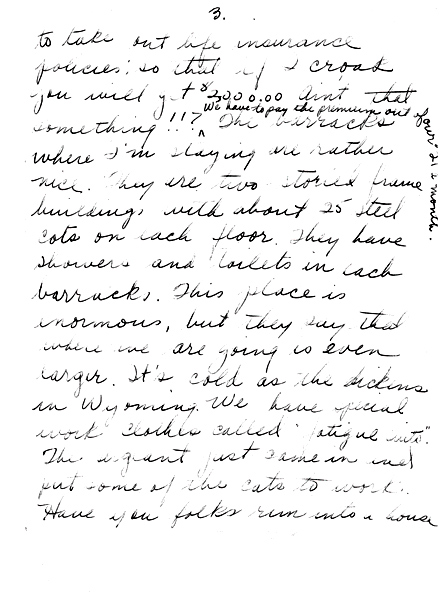 3.
to take out life insurance
policies; so that if I croak
you will get $3,000.00 Aint that
We have to pay the premium out of our 21 a month.
something!!! The barracks
where I'm staying are rather
nice. They are two storied frame
buildings with about 25 steel
cots on each floor. They have
showers and toilets in each
barracks. This place is
enormous, but they say that
where we are going is even
larger. It's cold as the dickens
in Wyoming. We have special
work clothes called "fatigue suits".
The sergeant just came in and
put some of the cats to work.
Have you folks run into a house